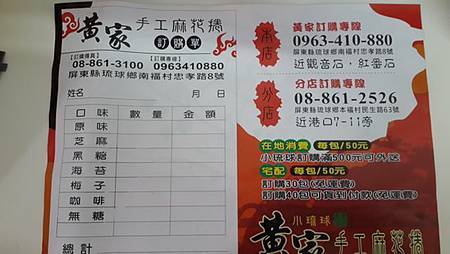 黃家 手工麻花捲
訂購單
【訂購傳真】 【訂購專線】
08-861-3100 0963410880
屏東縣琉球鄉南福村忠孝路8號
姓名 月 日
口味 數量 金額
原味
芝麻
黑糖
海苔
梅子
咖啡
無糖
總計
本店
黃家訂購專線
0963-410-880
屏東縣琉球鄉南福村忠孝路8號
近觀音石,紅番石
分店
分店訂購專線
08-861-2526
屏東縣琉球鄉本福村民生路63號
近港口7-11旁
在地消費 每包/50元
小琉球訂購滿500元可外送
宅配 每包/50元
訂購30包(免運費)
訂購40包可貨到付款(免運費)
小琉球
黃家手工麻花捲